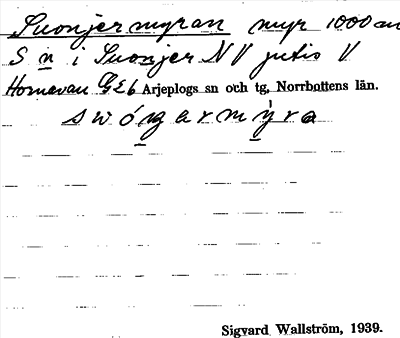 Suonjermyran myr 1000 m
S n i Suonjer N V jutis V
Hornavan G2b Arjeplogs sn och tg, Norrbottens län.
Sigvard Wallström, 1939.